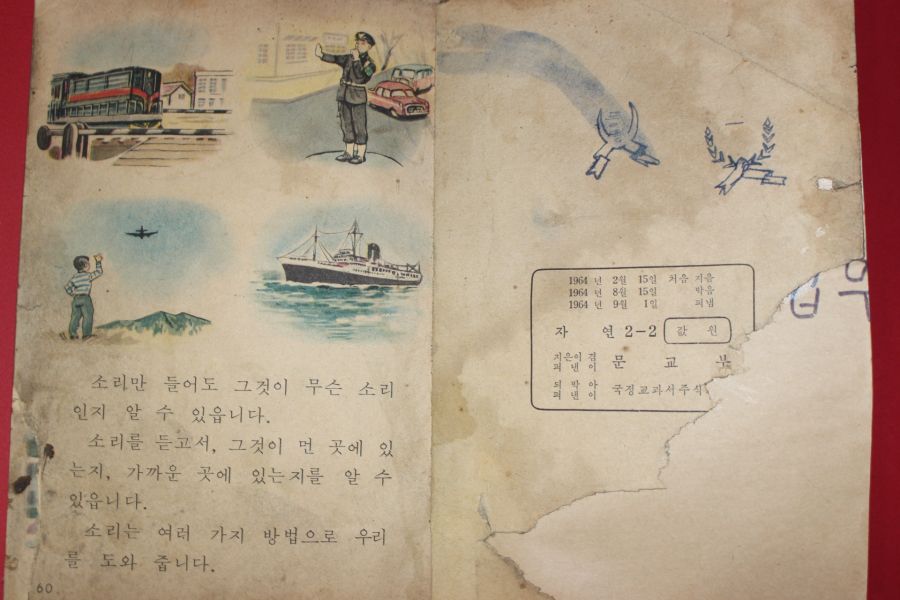 소리만 들어도 그것이 무슨 소리
인지 알 수 있읍니다.
소리를 듣고서, 그것이 먼 곳에 있
는지, 가까운 곳에 있는지를 알 수
있읍니다.
소리는 여러 가지 방법으로 우리
를 도와 줍니다.
60
1964 년 2월 15일 처음 지음
1964 년 8월 15일 박음
1964 년 9월 1일 펴냄
자 연 2-2 값 원
지은이 겸
펴낸이 문 교 부
되박아
펴낸이 국정교과서주식